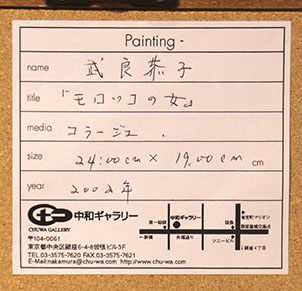 Painting -
name 武良恭子
title 「モロッコの女」
media コラージュ.
size 24.00cm × 19.00cm cm
year 2002年
CHUWA GALLERY
中和ギャラリー
〒104-0061
東京都中央区銀座6-4-8曽根ビル3F
TEL.03-3575-7620 FAX.03-3575-7621
E-Mail:nakamura@chu-wa.com http://www.chu-wa.com
第一勧銀
中和ギャラリー
阪急
有楽町マリオン
数寄屋橋交差点
←新橋
外堀通り
ソニービル
銀座4丁目